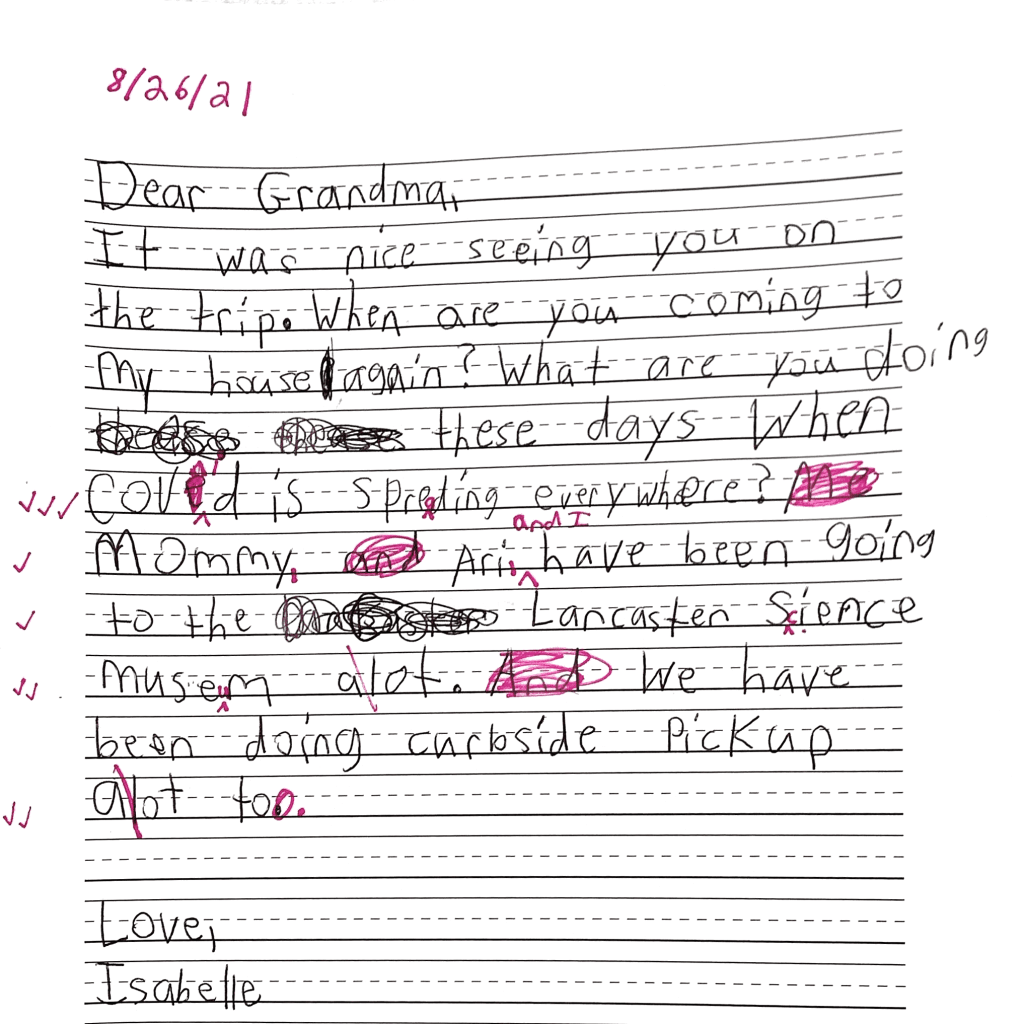 8/26/21
Dear Grandma,
It was nice seeing you on
the trip. When are you coming to
My house again? What are you doing
these days When
COVid is spreding everywhere?
and I
Mommy, Ari, have been going
to the Lancaster Science
museum a lot. We have
been doing curbside pickup
a lot too.
Love,
Isabelle